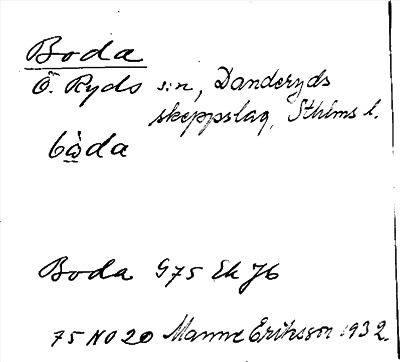 Boda
Ö. Ryds s:n, Danderyds
skeppslag, Sthlms l.
bò̱da
Boda G75 Ek J6
75 NO 20 Manne Eriksson 1932.